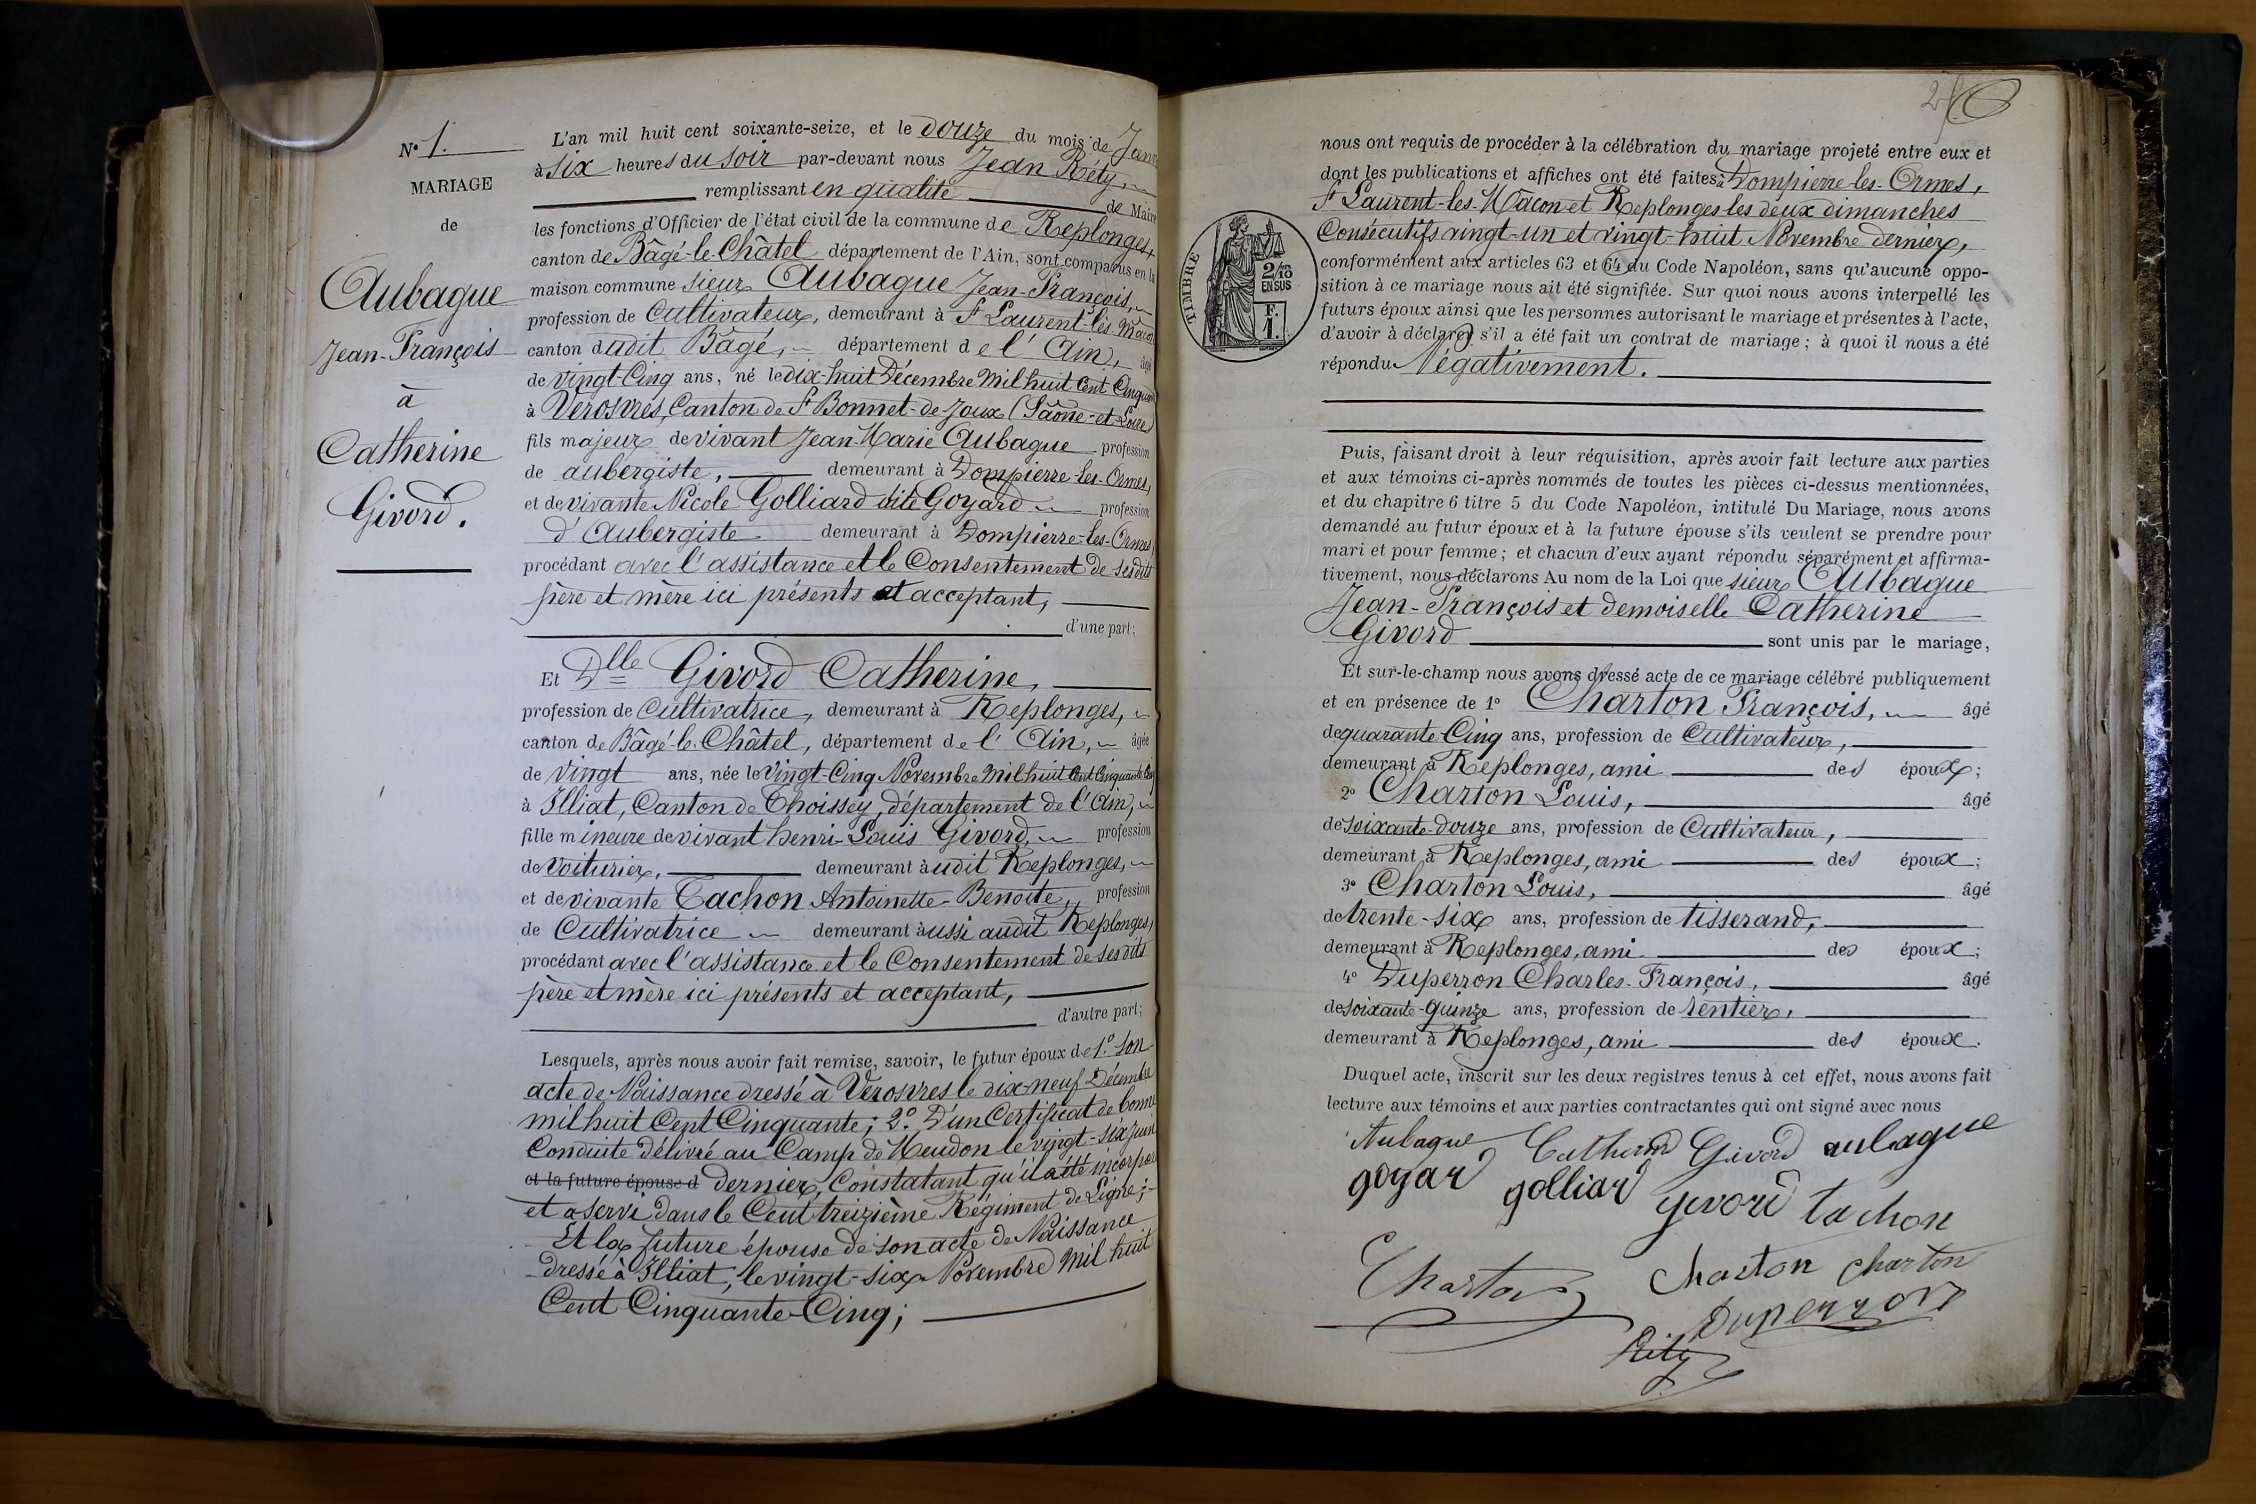 N° 1.
MARIAGE
de
Aubague
Jean-François
à
Catherine
Givord.
L'an mil huit cent soixante-seize, et le douze du mois de Janv
à six heures du soir par-devant nous Jean Réty,
remplissant en qualité de Maire
les fonctions d'Officier de l'état civil de la commune de Replonges,
canton de Bâgé-le-Châtel département de l'Ain, sont comparus en la
maison commune sieur Aubague Jean-François,
profession de Cultivateur, demeurant à St Laurent-lès-Mâcon
canton dudit Bâgé, département de l'Ain, âgé
de vingt-Cinq ans, né le dix-huit Décembre Mil huit Cent Cinquante
à Verosvres, Canton de St Bonnet-de-Joux (Saône-et-Loire)
fils majeur de vivant Jean-Marie Aubague profession
de aubergiste, demeurant à Dompierre-les-Ormes,
et de vivante Nicole Golliard dite Goyard profession
d'Aubergiste demeurant à Dompierre-les-Ormes,
procédant avec l'assistance et le Consentement de ses dits
père et mère ici présents et acceptant,
d'une part;
Et Dlle Givord Catherine,
profession de Cultivatrice, demeurant à Replonges,
canton de Bâgé-le-Châtel, département de l'Ain, âgée
de vingt ans, née le vingt-Cinq Novembre Mil huit Cent Cinquante Cinq
à Illiat, Canton de Thoissey, département de l'Ain,
fille mineure de vivant henri-Louis Givord, profession
de voiturier, demeurant audit Replonges,
et de vivante Tachon Antoinette-Benoite, profession
de Cultivatrice demeurant aussi audit Replonges,
procédant avec l'assistance et le Consentement de ses dits
père et mère ici présents et acceptant,
d'autre part;
Lesquels, après nous avoir fait remise, savoir, le futur époux de 1.° son
acte de Naissance dressé à Verosvres le dix-neuf Décembre
mil huit Cent Cinquante; 2.° D'un Certificat de bonne
Conduite délivré au Camp de Meudon le vingt-six Juin
et la future épouse d dernier, Constatant qu'il a été incorporé
et a servi dans le Cent treizième Régiment de Ligne;
Et la future épouse de son acte de Naissance
dressé à Illiat, le vingt-six Novembre Mil huit
Cent Cinquante-Cinq;
nous ont requis de procéder à la célébration du mariage projeté entre eux et
dont les publications et affiches ont été faites à Dompierre-les-Ormes,
St Laurent-lès-Mâcon et Replonges les deux dimanches
Consécutifs vingt-un et vingt-huit Novembre dernier,
conformément aux articles 63 et 64 du Code Napoléon, sans qu'aucune oppo-
sition à ce mariage nous ait été signifiée. Sur quoi nous avons interpellé les
futurs époux ainsi que les personnes autorisant le mariage et présentes à l'acte,
d'avoir à déclarer s'il a été fait un contrat de mariage; à quoi il nous a été
répondu Négativement.
TIMBRE
2/10
EN SUS
F.
1.
Puis, faisant droit à leur réquisition, après avoir fait lecture aux parties
et aux témoins ci-après nommés de toutes les pièces ci-dessus mentionnées,
et du chapitre 6 titre 5 du Code Napoléon, intitulé Du Mariage, nous avons
demandé au futur époux et à la future épouse s'ils veulent se prendre pour
mari et pour femme; et chacun d'eux ayant répondu séparément et affirma-
tivement, nous déclarons Au nom de la Loi que sieur Aubague
Jean-François et demoiselle Catherine
Givord sont unis par le mariage,
Et sur-le-champ nous avons dressé acte de ce mariage célébré publiquement
et en présence de 1° Charton François, âgé
de quarante-Cinq ans, profession de Cultivateur,
demeurant à Replonges, ami des époux;
2° Charton Louis, âgé
de soixante-douze ans, profession de Cultivateur,
demeurant à Replonges, ami des époux;
3° Charton Louis, âgé
de trente-six ans, profession de tisserand,
demeurant à Replonges, ami des époux;
4° Duperron Charles-François, âgé
de soixante-quinze ans, profession de rentier,
demeurant à Replonges, ami des époux.
Duquel acte, inscrit sur les deux registres tenus à cet effet, nous avons fait
lecture aux témoins et aux parties contractantes qui ont signé avec nous
Aubague Catherine Givord aubague
goyard golliard givord tachon
Charton Charton charton
Duperron
Réty